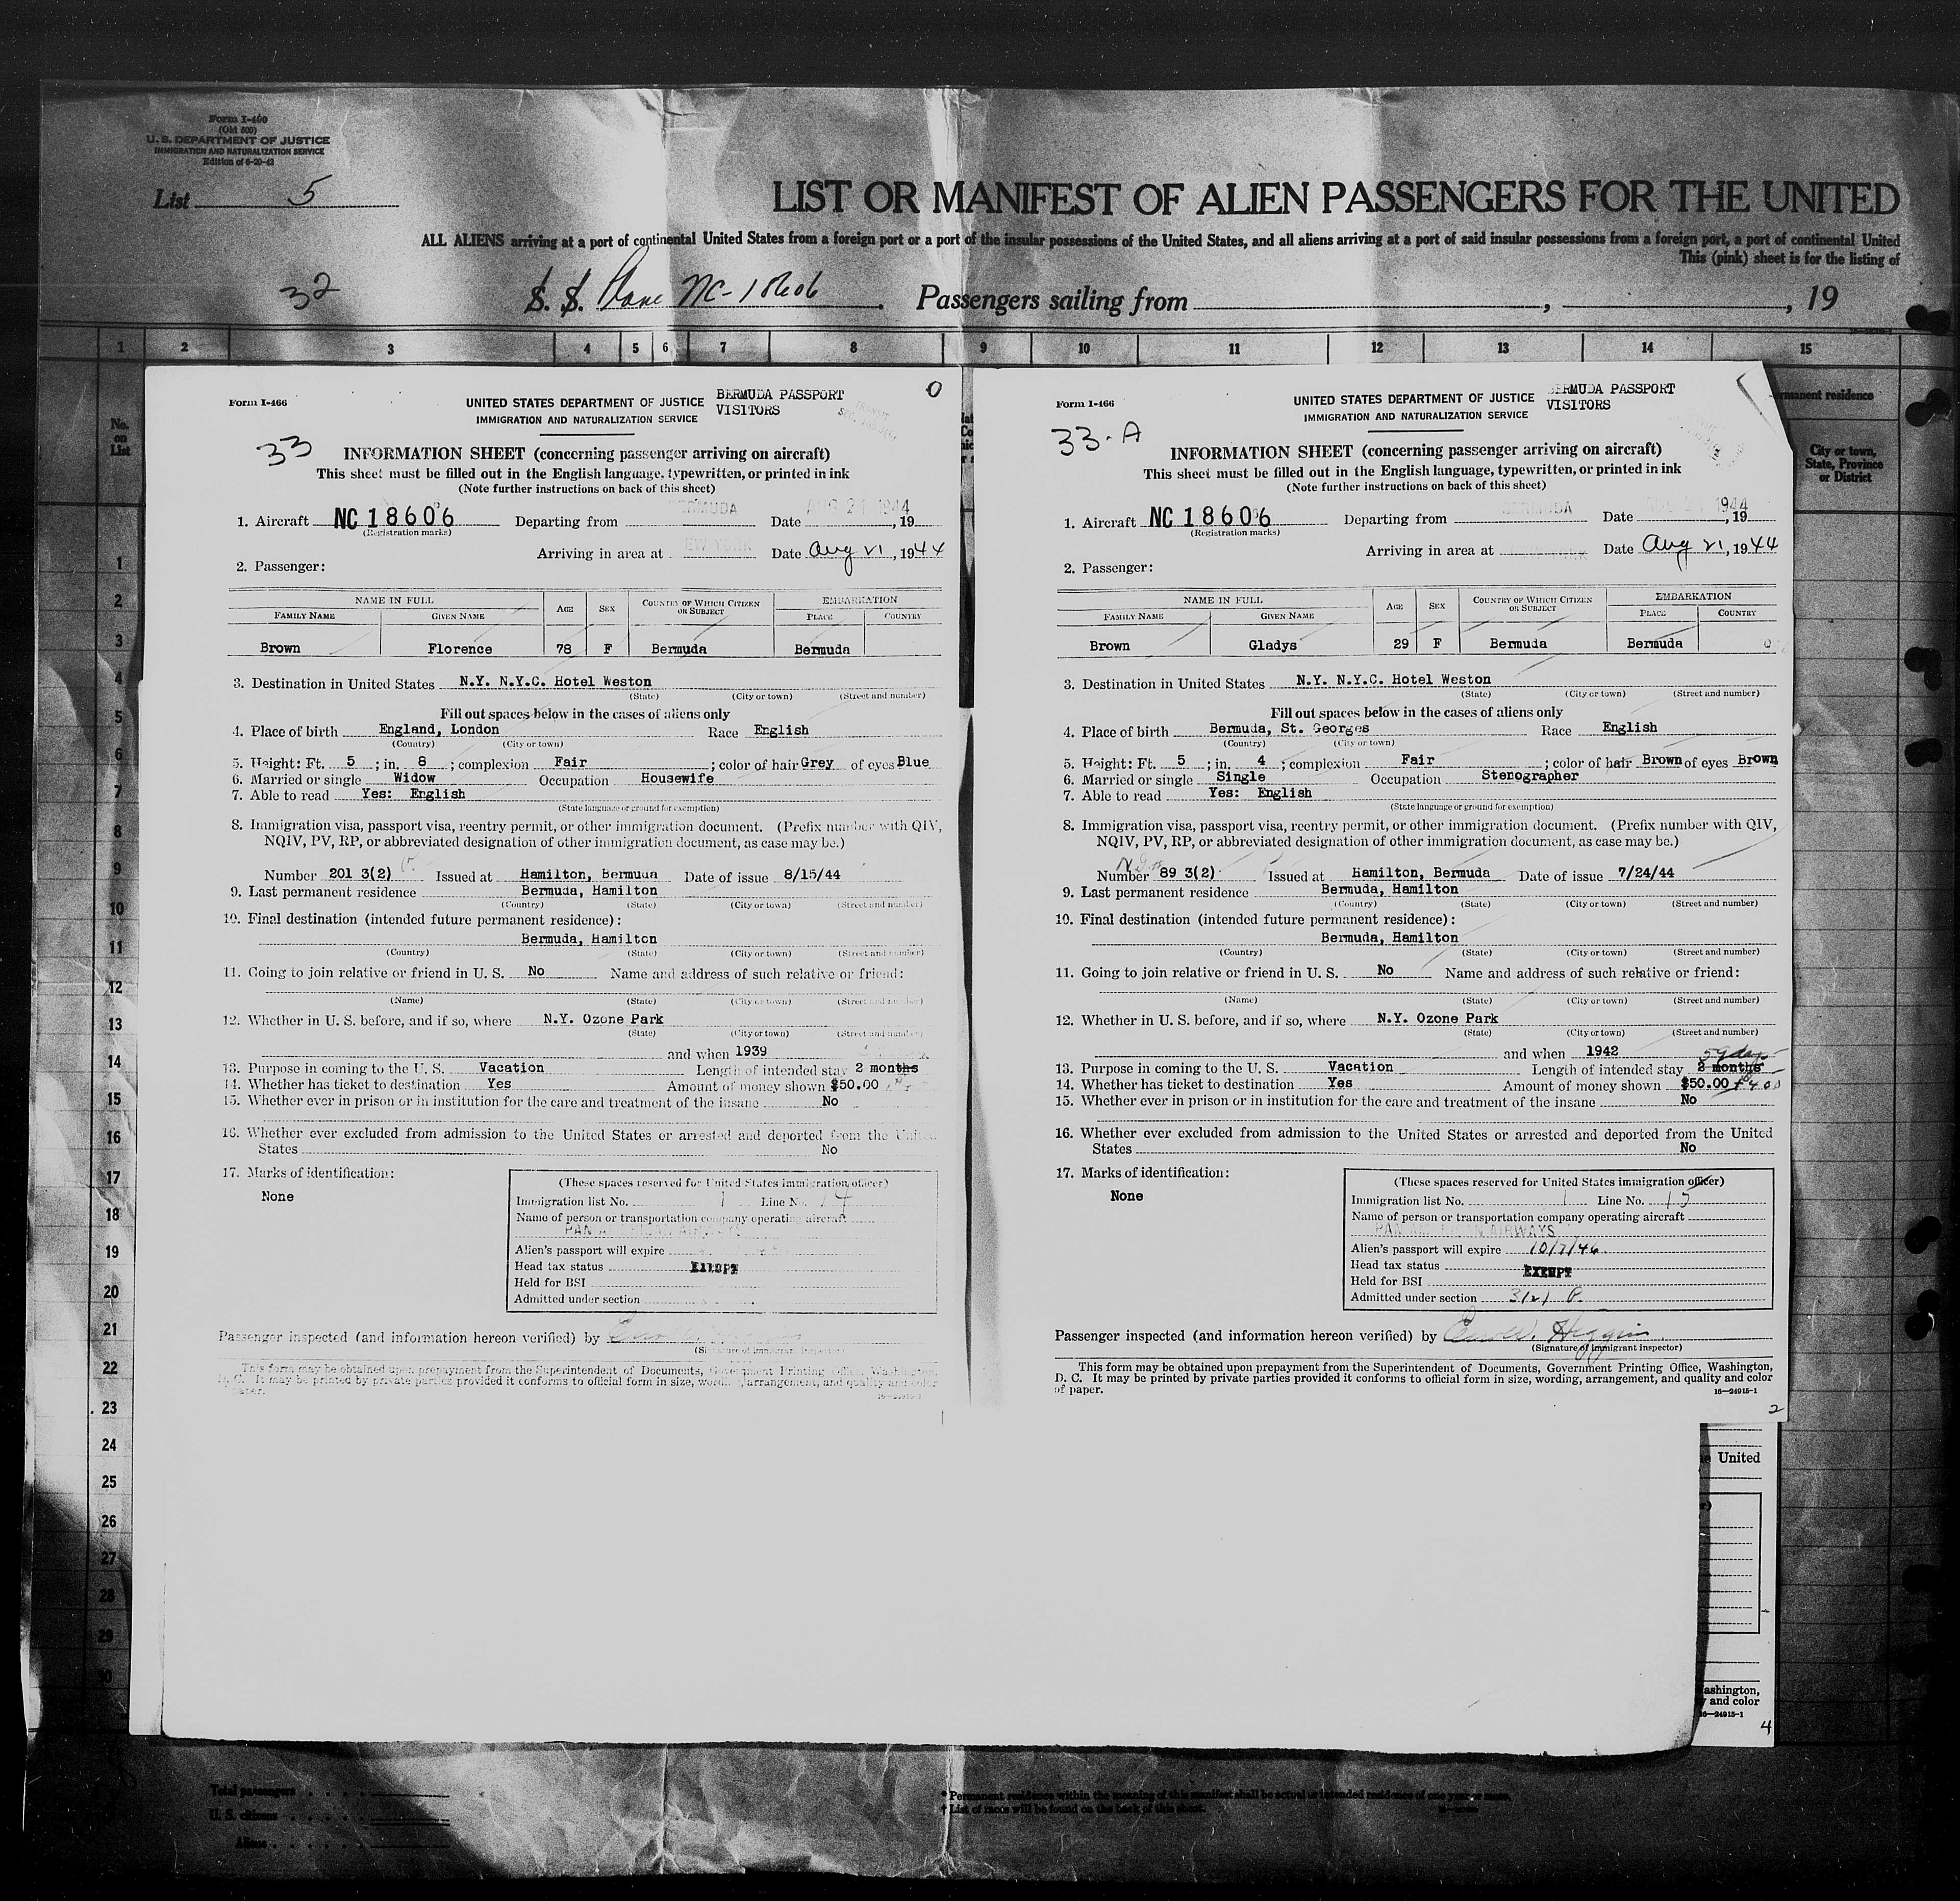 Form I-460
(Old 500)
U. S. DEPARTMENT OF JUSTICE
IMMIGRATION AND NATURALIZATION SERVICE
Edition of 6-20-42
List 5
LIST OR MANIFEST OF ALIEN PASSENGERS FOR THE UNITED
ALL ALIENS arriving at a port of continental United States from a foreign port or a port of the insular possessions of the United States, and all aliens arriving at a port of said insular possessions from a foreign port, a port of continental United
This (pink) sheet is for the listing of
32 S. S. Plane NC-18606 Passengers sailing from , , 19
1 2 3 4 5 6 7 8 9 10 11 12 13 14 15
No. on List
permanent residence
City or town, State, Province or District
Form I-466
UNITED STATES DEPARTMENT OF JUSTICE
IMMIGRATION AND NATURALIZATION SERVICE
BERMUDA PASSPORT
VISITORS
0
33
INFORMATION SHEET (concerning passenger arriving on aircraft)
This sheet must be filled out in the English language, typewritten, or printed in ink
(Note further instructions on back of this sheet)
1. Aircraft NC 18606 Departing from BERMUDA Date AUG 21 1944, 19
(Registration marks)
Arriving in area at NEW YORK Date Aug 21, 1944
2. Passenger:
NAME IN FULL AGE SEX COUNTRY OF WHICH CITIZEN OR SUBJECT EMBARKATION
FAMILY NAME GIVEN NAME PLACE COUNTRY
Brown Florence 78 F Bermuda Bermuda
3. Destination in United States N.Y. N.Y.C. Hotel Weston
(State) (City or town) (Street and number)
Fill out spaces below in the cases of aliens only
4. Place of birth England, London Race English
(Country) (City or town)
5. Height: Ft. 5 ; in. 8 ; complexion Fair ; color of hair Grey of eyes Blue
6. Married or single Widow Occupation Housewife
7. Able to read Yes: English
(State language or ground for exemption)
8. Immigration visa, passport visa, reentry permit, or other immigration document. (Prefix number with QIV,
NQIV, PV, RP, or abbreviated designation of other immigration document, as case may be.)
Number 201 3(2) Issued at Hamilton, Bermuda Date of issue 8/15/44
9. Last permanent residence Bermuda, Hamilton
(Country) (State) (City or town) (Street and number)
10. Final destination (intended future permanent residence):
Bermuda, Hamilton
(Country) (State) (City or town) (Street and number)
11. Going to join relative or friend in U. S. No Name and address of such relative or friend:
(Name) (State) (City or town) (Street and number)
12. Whether in U. S. before, and if so, where N.Y. Ozone Park
(State) (City or town) (Street and number)
and when 1939
13. Purpose in coming to the U. S. Vacation Length of intended stay 2 months
14. Whether has ticket to destination Yes Amount of money shown $50.00
15. Whether ever in prison or in institution for the care and treatment of the insane No
16. Whether ever excluded from admission to the United States or arrested and deported from the United
States No
17. Marks of identification:
None
(These spaces reserved for United States immigration officer)
Immigration list No. 1 Line No. 14
Name of person or transportation company operating aircraft
PAN AMERICAN AIRWAYS
Alien's passport will expire
Head tax status EXEMPT
Held for BSI
Admitted under section
Passenger inspected (and information hereon verified) by
(Signature of immigrant inspector)
This form may be obtained upon prepayment from the Superintendent of Documents, Government Printing Office, Washington,
D. C. It may be printed by private parties provided it conforms to official form in size, wording, arrangement, and quality and color
of paper.
Form I-466
UNITED STATES DEPARTMENT OF JUSTICE
IMMIGRATION AND NATURALIZATION SERVICE
BERMUDA PASSPORT
VISITORS
33-A
INFORMATION SHEET (concerning passenger arriving on aircraft)
This sheet must be filled out in the English language, typewritten, or printed in ink
(Note further instructions on back of this sheet)
1. Aircraft NC 18606 Departing from BERMUDA Date 1944, 19
(Registration marks)
Arriving in area at Date Aug 21, 1944
2. Passenger:
NAME IN FULL AGE SEX COUNTRY OF WHICH CITIZEN OR SUBJECT EMBARKATION
FAMILY NAME GIVEN NAME PLACE COUNTRY
Brown Gladys 29 F Bermuda Bermuda
3. Destination in United States N.Y. N.Y.C. Hotel Weston
(State) (City or town) (Street and number)
Fill out spaces below in the cases of aliens only
4. Place of birth Bermuda, St. Georges Race English
(Country) (City or town)
5. Height: Ft. 5 ; in. 4 ; complexion Fair ; color of hair Brown of eyes Brown
6. Married or single Single Occupation Stenographer
7. Able to read Yes: English
(State language or ground for exemption)
8. Immigration visa, passport visa, reentry permit, or other immigration document. (Prefix number with QIV,
NQIV, PV, RP, or abbreviated designation of other immigration document, as case may be.)
Number 89 3(2) Issued at Hamilton, Bermuda Date of issue 7/24/44
9. Last permanent residence Bermuda, Hamilton
(Country) (State) (City or town) (Street and number)
10. Final destination (intended future permanent residence):
Bermuda, Hamilton
(Country) (State) (City or town) (Street and number)
11. Going to join relative or friend in U. S. No Name and address of such relative or friend:
(Name) (State) (City or town) (Street and number)
12. Whether in U. S. before, and if so, where N.Y. Ozone Park
(State) (City or town) (Street and number)
and when 1942
59 days
13. Purpose in coming to the U. S. Vacation Length of intended stay 2 months
14. Whether has ticket to destination Yes Amount of money shown $50.00
15. Whether ever in prison or in institution for the care and treatment of the insane No
16. Whether ever excluded from admission to the United States or arrested and deported from the United
States No
17. Marks of identification:
None
(These spaces reserved for United States immigration officer)
Immigration list No. 1 Line No. 15
Name of person or transportation company operating aircraft
PAN AMERICAN AIRWAYS
Alien's passport will expire 10/7/46
Head tax status EXEMPT
Held for BSI
Admitted under section 3(2) P.
Passenger inspected (and information hereon verified) by Higgins
(Signature of immigrant inspector)
This form may be obtained upon prepayment from the Superintendent of Documents, Government Printing Office, Washington,
D. C. It may be printed by private parties provided it conforms to official form in size, wording, arrangement, and quality and color
of paper.
16—24915-1
2
1
2
3
4
5
6
7
8
9
10
11
12
13
14
15
16
17
18
19
20
21
22
23
24
25
26
27
28
29
30
United
Washington,
and color
16—24915-1
4
Total passengers
U. S. citizens
Aliens
* Permanent residence within the meaning of this manifest shall be actual or intended residence of one year or more.
† List of races will be found on the back of this sheet.